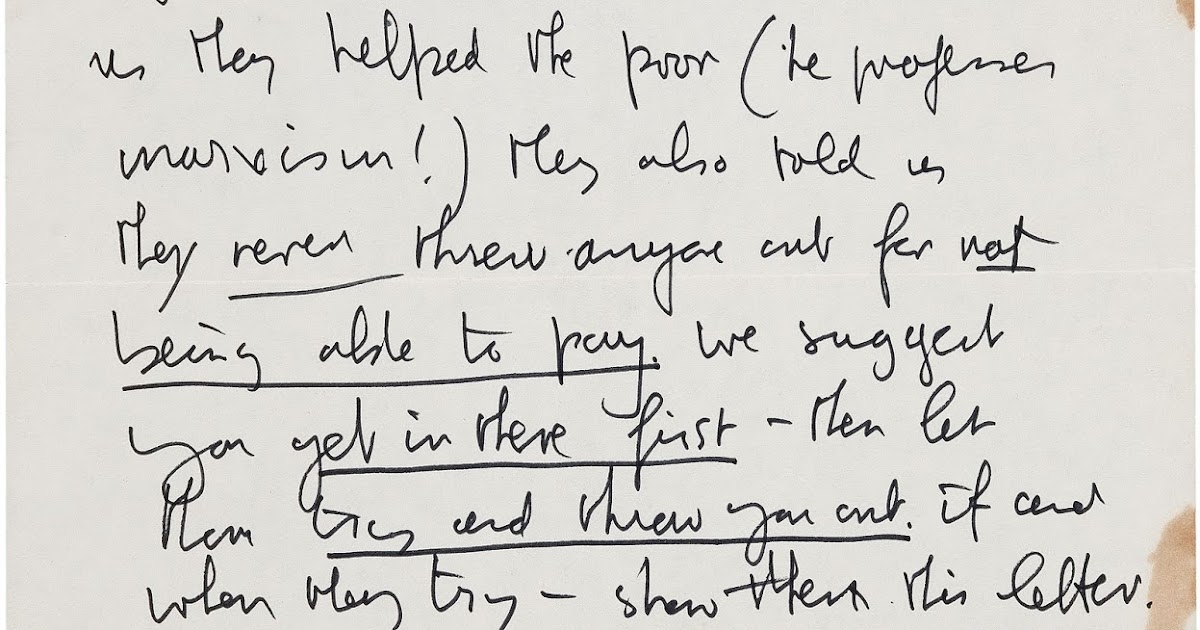 us they helped the poor (he professes
marxism!) they also told us
they never threw anyone out for not
being able to pay. we suggest
you get in there first - then let
them try and throw you out. if and
when they try - show them this letter.